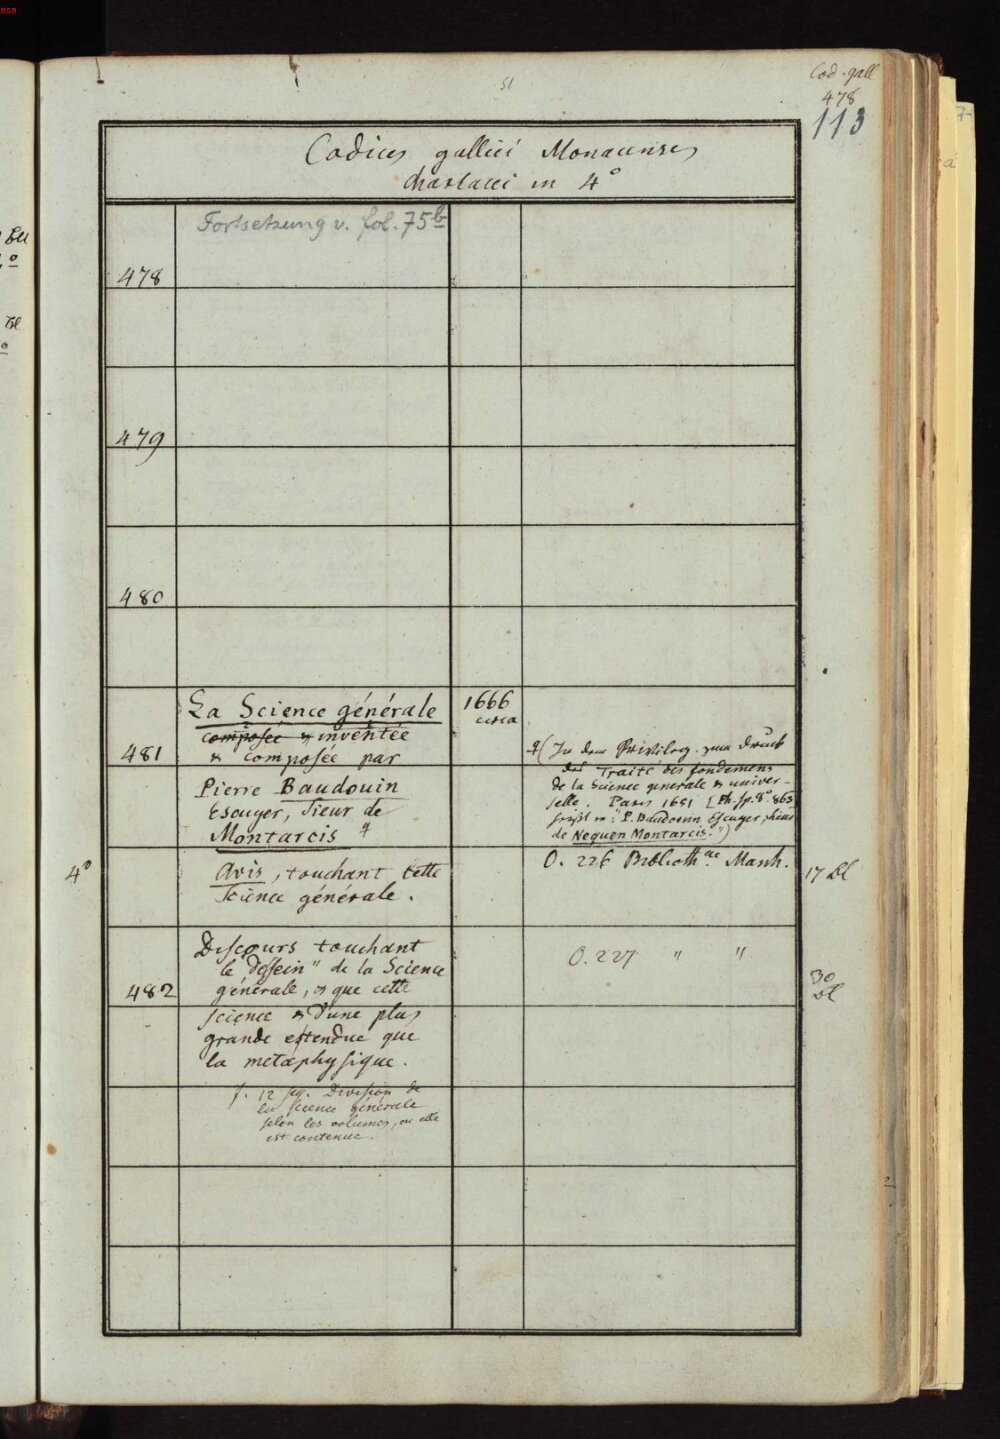 51
Cod. gall
478
113
Codices gallici Monacenses
chartacei in 4°
Fortsetzung v. fol. 75b
478
479
480
La Science générale
1666
circa
composée & inventée
481
& composée par
Pierre Baudouin
Escuyer, Sieur de
Montarcis
(In dem Privileg. zum Druck
des Traité des fondemens
de la Science generale & univer-
selle. Paris 1651 [Ph. sp. 8°. 865
heißt er: "P. Baudouin Escuyer, Sieur
de Nequen Montarcis.")
4°
Avis, touchant cette
Science générale.
O. 226 Biblioth.ae Manh.
17 Bl
Discours touchant
le "dessein" de la Science
482
générale, & que cette
O. 227 " "
30
Bl
science & d'une plus
grande estendue que
la metaphysique.
f. 12 seq. Division de
la Science générale
selon les volumes, ou elle
est contenue.